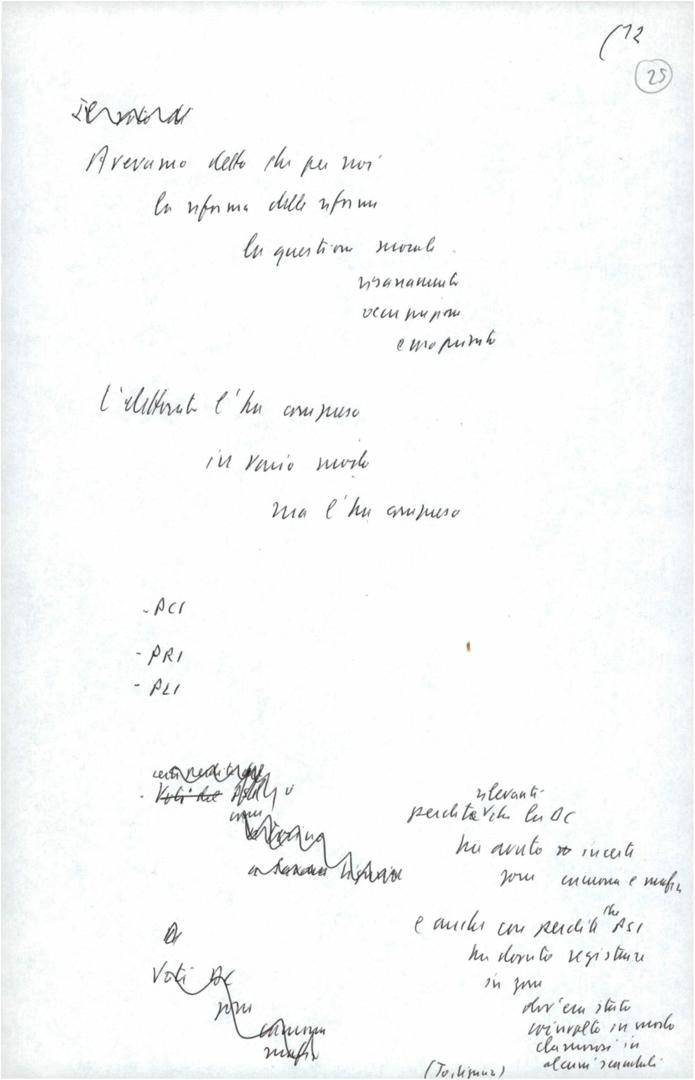 (12
25
Avevamo detto che per noi
la riforma delle riforme
la questione morale.
risanamento
occupazione
L'elettorato l'ha compreso
in vario modo
ma l'ha compreso
- PCI
- PRI
- PLI
- Voti del
rilevanti
perdite che la DC
ha avuto in certe
zone camorra e mafia
e anche con perdite che PSI
ha dovuto registrare
in zone
dov'era stato
coinvolto in modo
clamoroso in
alcuni scandali
Voti DC
zone
camorra
mafia